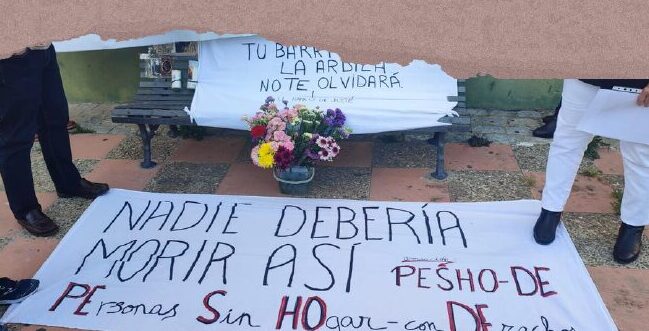 TU BARR
LA ARDILA
NO TE OLVIDARÁ
NADIE DEBERÍA
MORIR ASÍ
PEŠHO-DE
PErsonas Sin HOgar-con DErecho